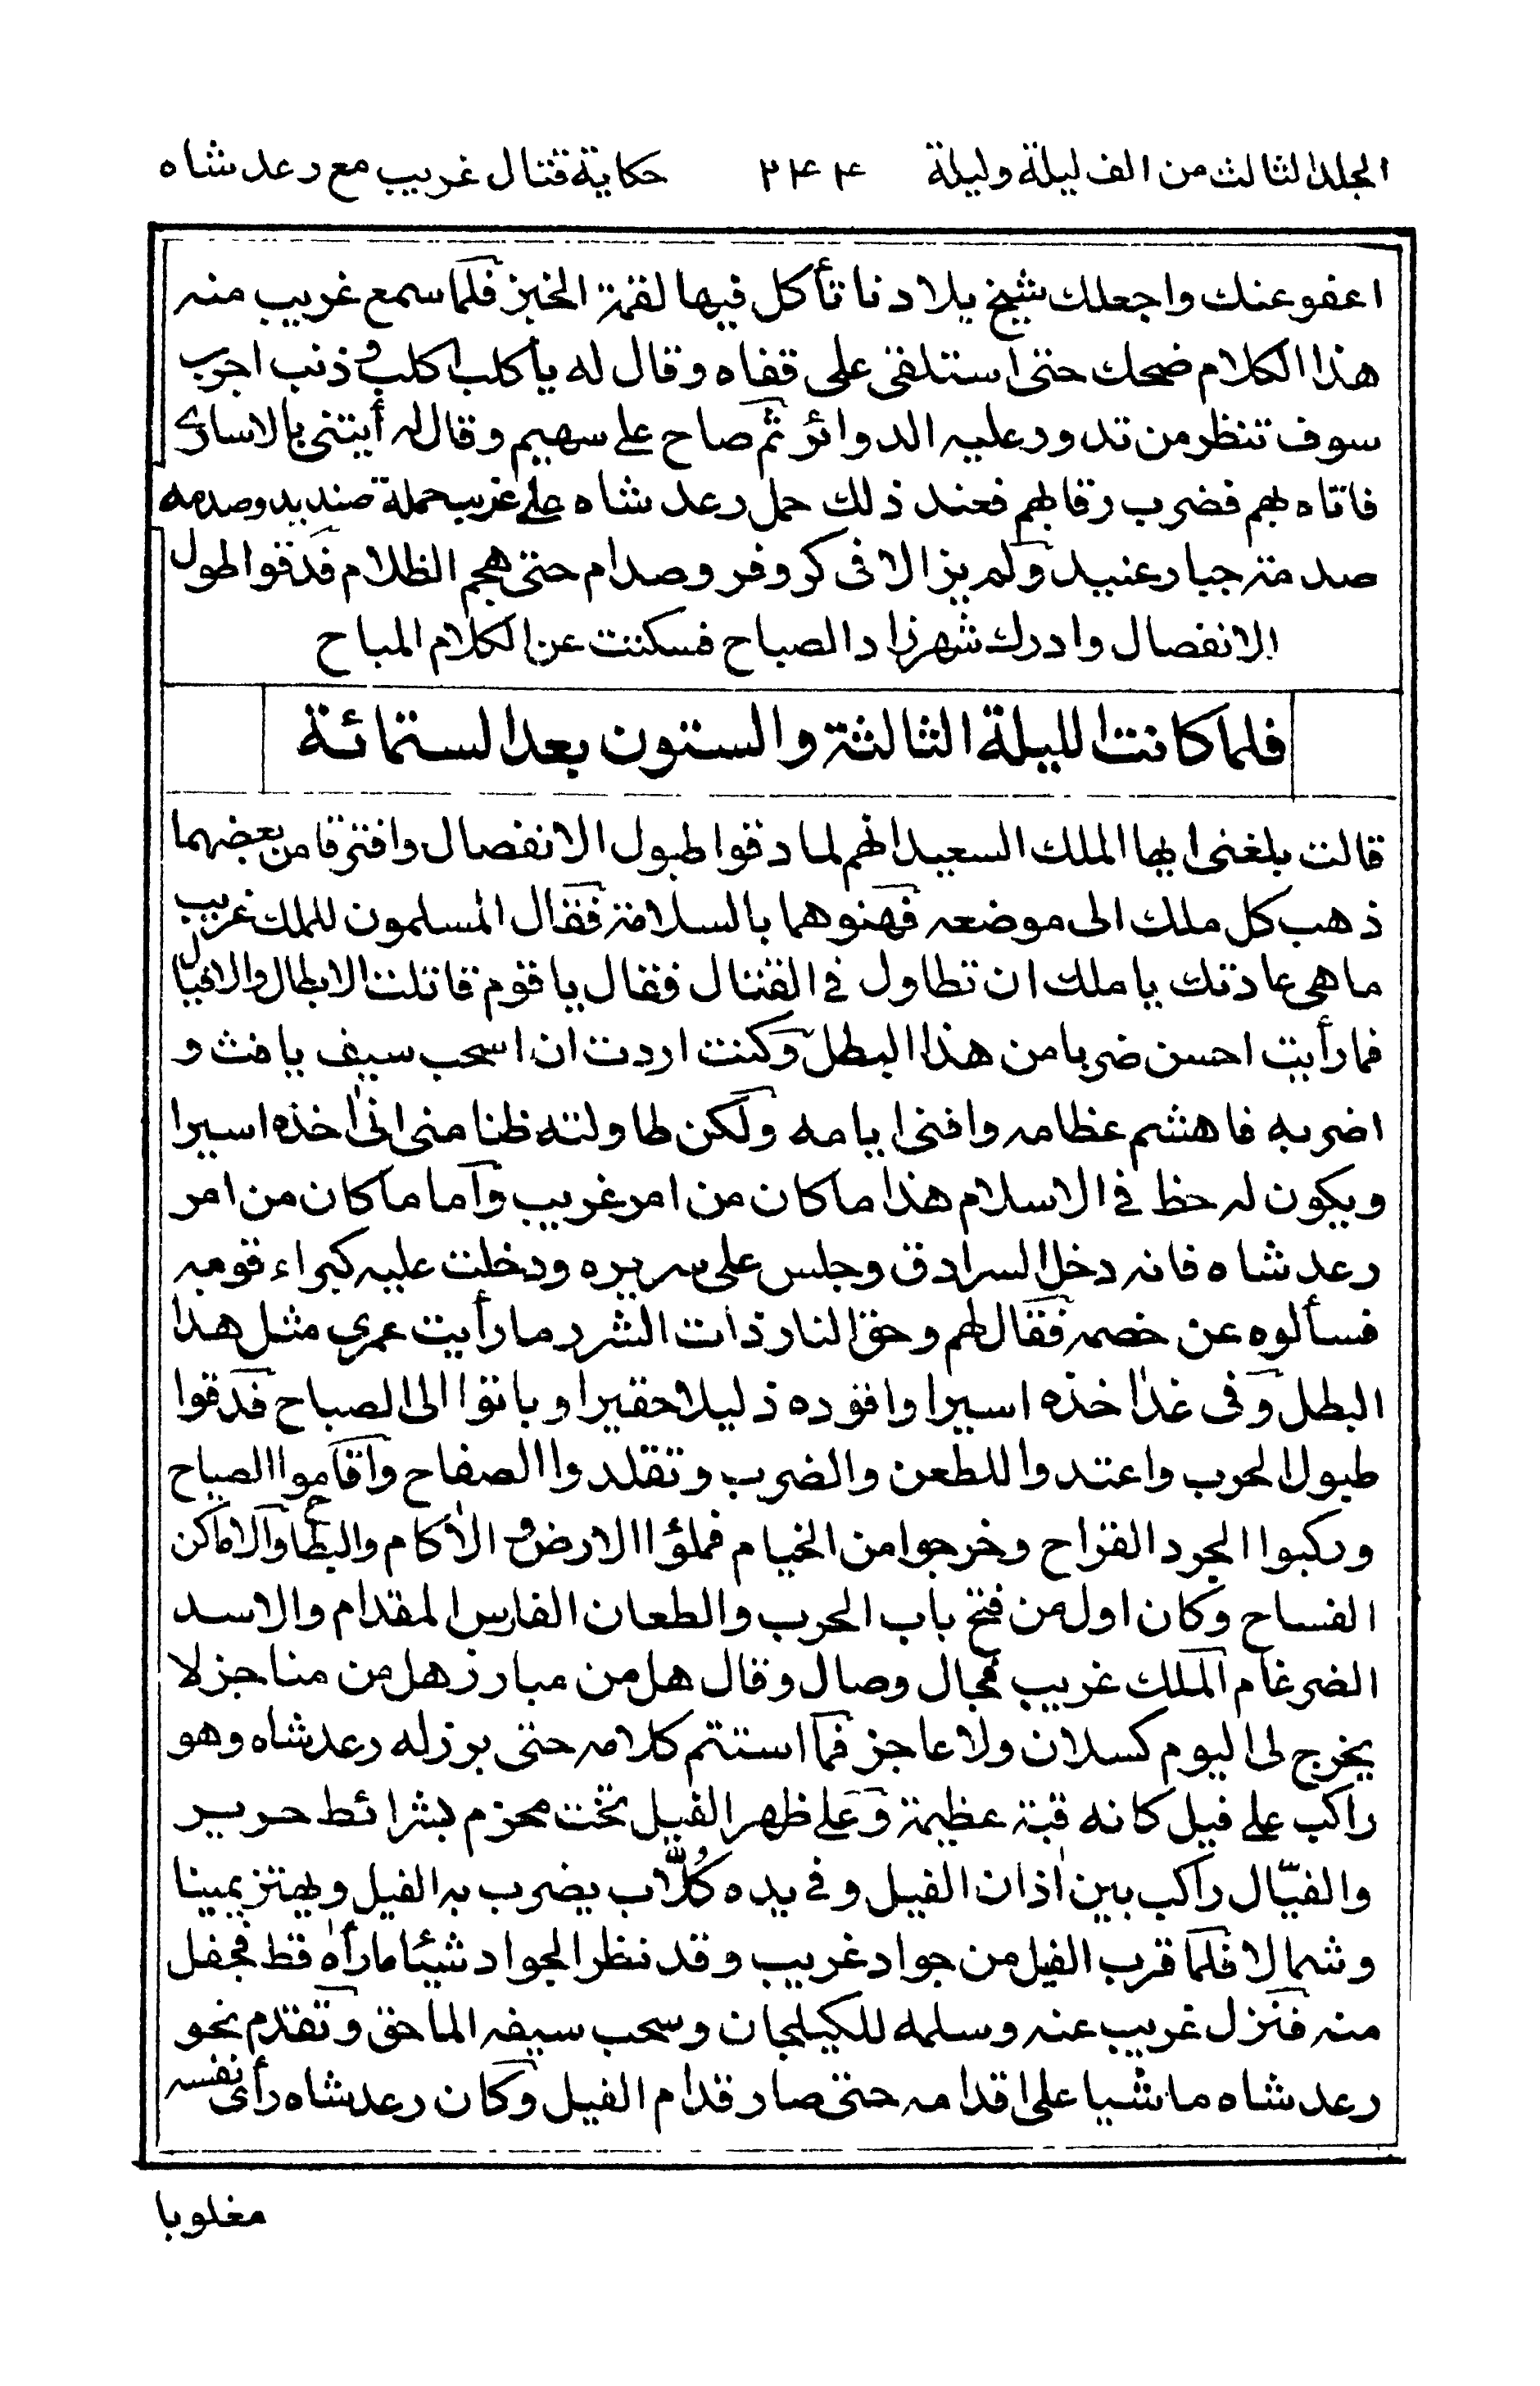 المجلد الثالث من الف ليلة وليلة ٢٤٤ حكاية قتال غريب مع رعد شاه
اعفو عنك واجعلك شيخ بلادنا تأكل فيها لقمة الخبز فلما سمع غريب منه
هذا الكلام ضحك حتى استلقى على قفاه وقال له يا كلب اكلب و ذئب اجرب
سوف تنظر من تدور عليه الدوائر ثم صاح على سهيم وقال له أيتنى بالاسارى
فاتاه بهم فضرب رقابهم فعند ذلك حمل رعد شاه على غريب حملة صنديد وصدمه
صدمة جبار عنيد ولم يزالا فى كر وفر وصدام حتى هجم الظلام فدقوا طبول
الانفصال وادرك شهرزاد الصباح فسكتت عن الكلام المباح
فلما كانت الليلة الثالثة والستون بعد الستمائة
قالت بلغنى ايها الملك السعيد انهم لما دقوا طبول الانفصال وافترقا من بعضهما
ذهب كل ملك الى موضعه فهنوهما بالسلامة فقال المسلمون للملك غريب
ما هى عادتك يا ملك ان تطاول فى القتال فقال يا قوم قاتلت الابطال والاقيال
فما رأيت احسن ضربا من هذا البطل وكنت اردت ان اسحب سيف يافث و
اضربه فاهشم عظامه وافنى ايامه ولكن طاولته ظنا منى انى اٰخذه اسيرا
ويكون له حظ فى الاسلام هذا ما كان من امر غريب وأما ما كان من امر
رعد شاه فانه دخل السرادق وجلس على سريره ودخلت عليه كبراء قومه
فسألوه عن خصمه فقال لهم وحق النار ذات الشرر ما رأيت عمرى مثل هذا
البطل وفى غدا اٰخذه اسيرا واقوده ذليلا حقيرا وباتوا الى الصباح فدقوا
طبول الحرب واعتدوا للطعن والضرب وتقلدوا الصفاح واقاموا الصياح
وركبوا الجرد القراح وخرجوا من الخيام فملؤا الارض و الاٰكام والبطاح والاماكن
الفساح وكان اول من فتح باب الحرب والطعان الفارس المقدام والاسد
الضرغام الملك غريب فجال وصال وقال هل من مبارز هل من مناجز لا
يخرج لى اليوم كسلان ولا عاجز فما استتم كلامه حتى برز له رعد شاه وهو
راكب على فيل كانه قبة عظيمة وعلى ظهر الفيل تخت محزم بشرائط حرير
والفيّال راكب بين اٰذان الفيل وفى يده كُلّاب يضرب به الفيل ويهتز يمينا
وشمالا فلما قرب الفيل من جواد غريب وقد نظر الجواد شيئا ما رأٰه قط فجفل
منه فنزل غريب عنه وسلمه للكيلجان وسحب سيفه الماحق وتقدم نحو
رعد شاه ماشيا على اقدامه حتى صار قدام الفيل وكان رعد شاه رأى نفسه
مغلوبا